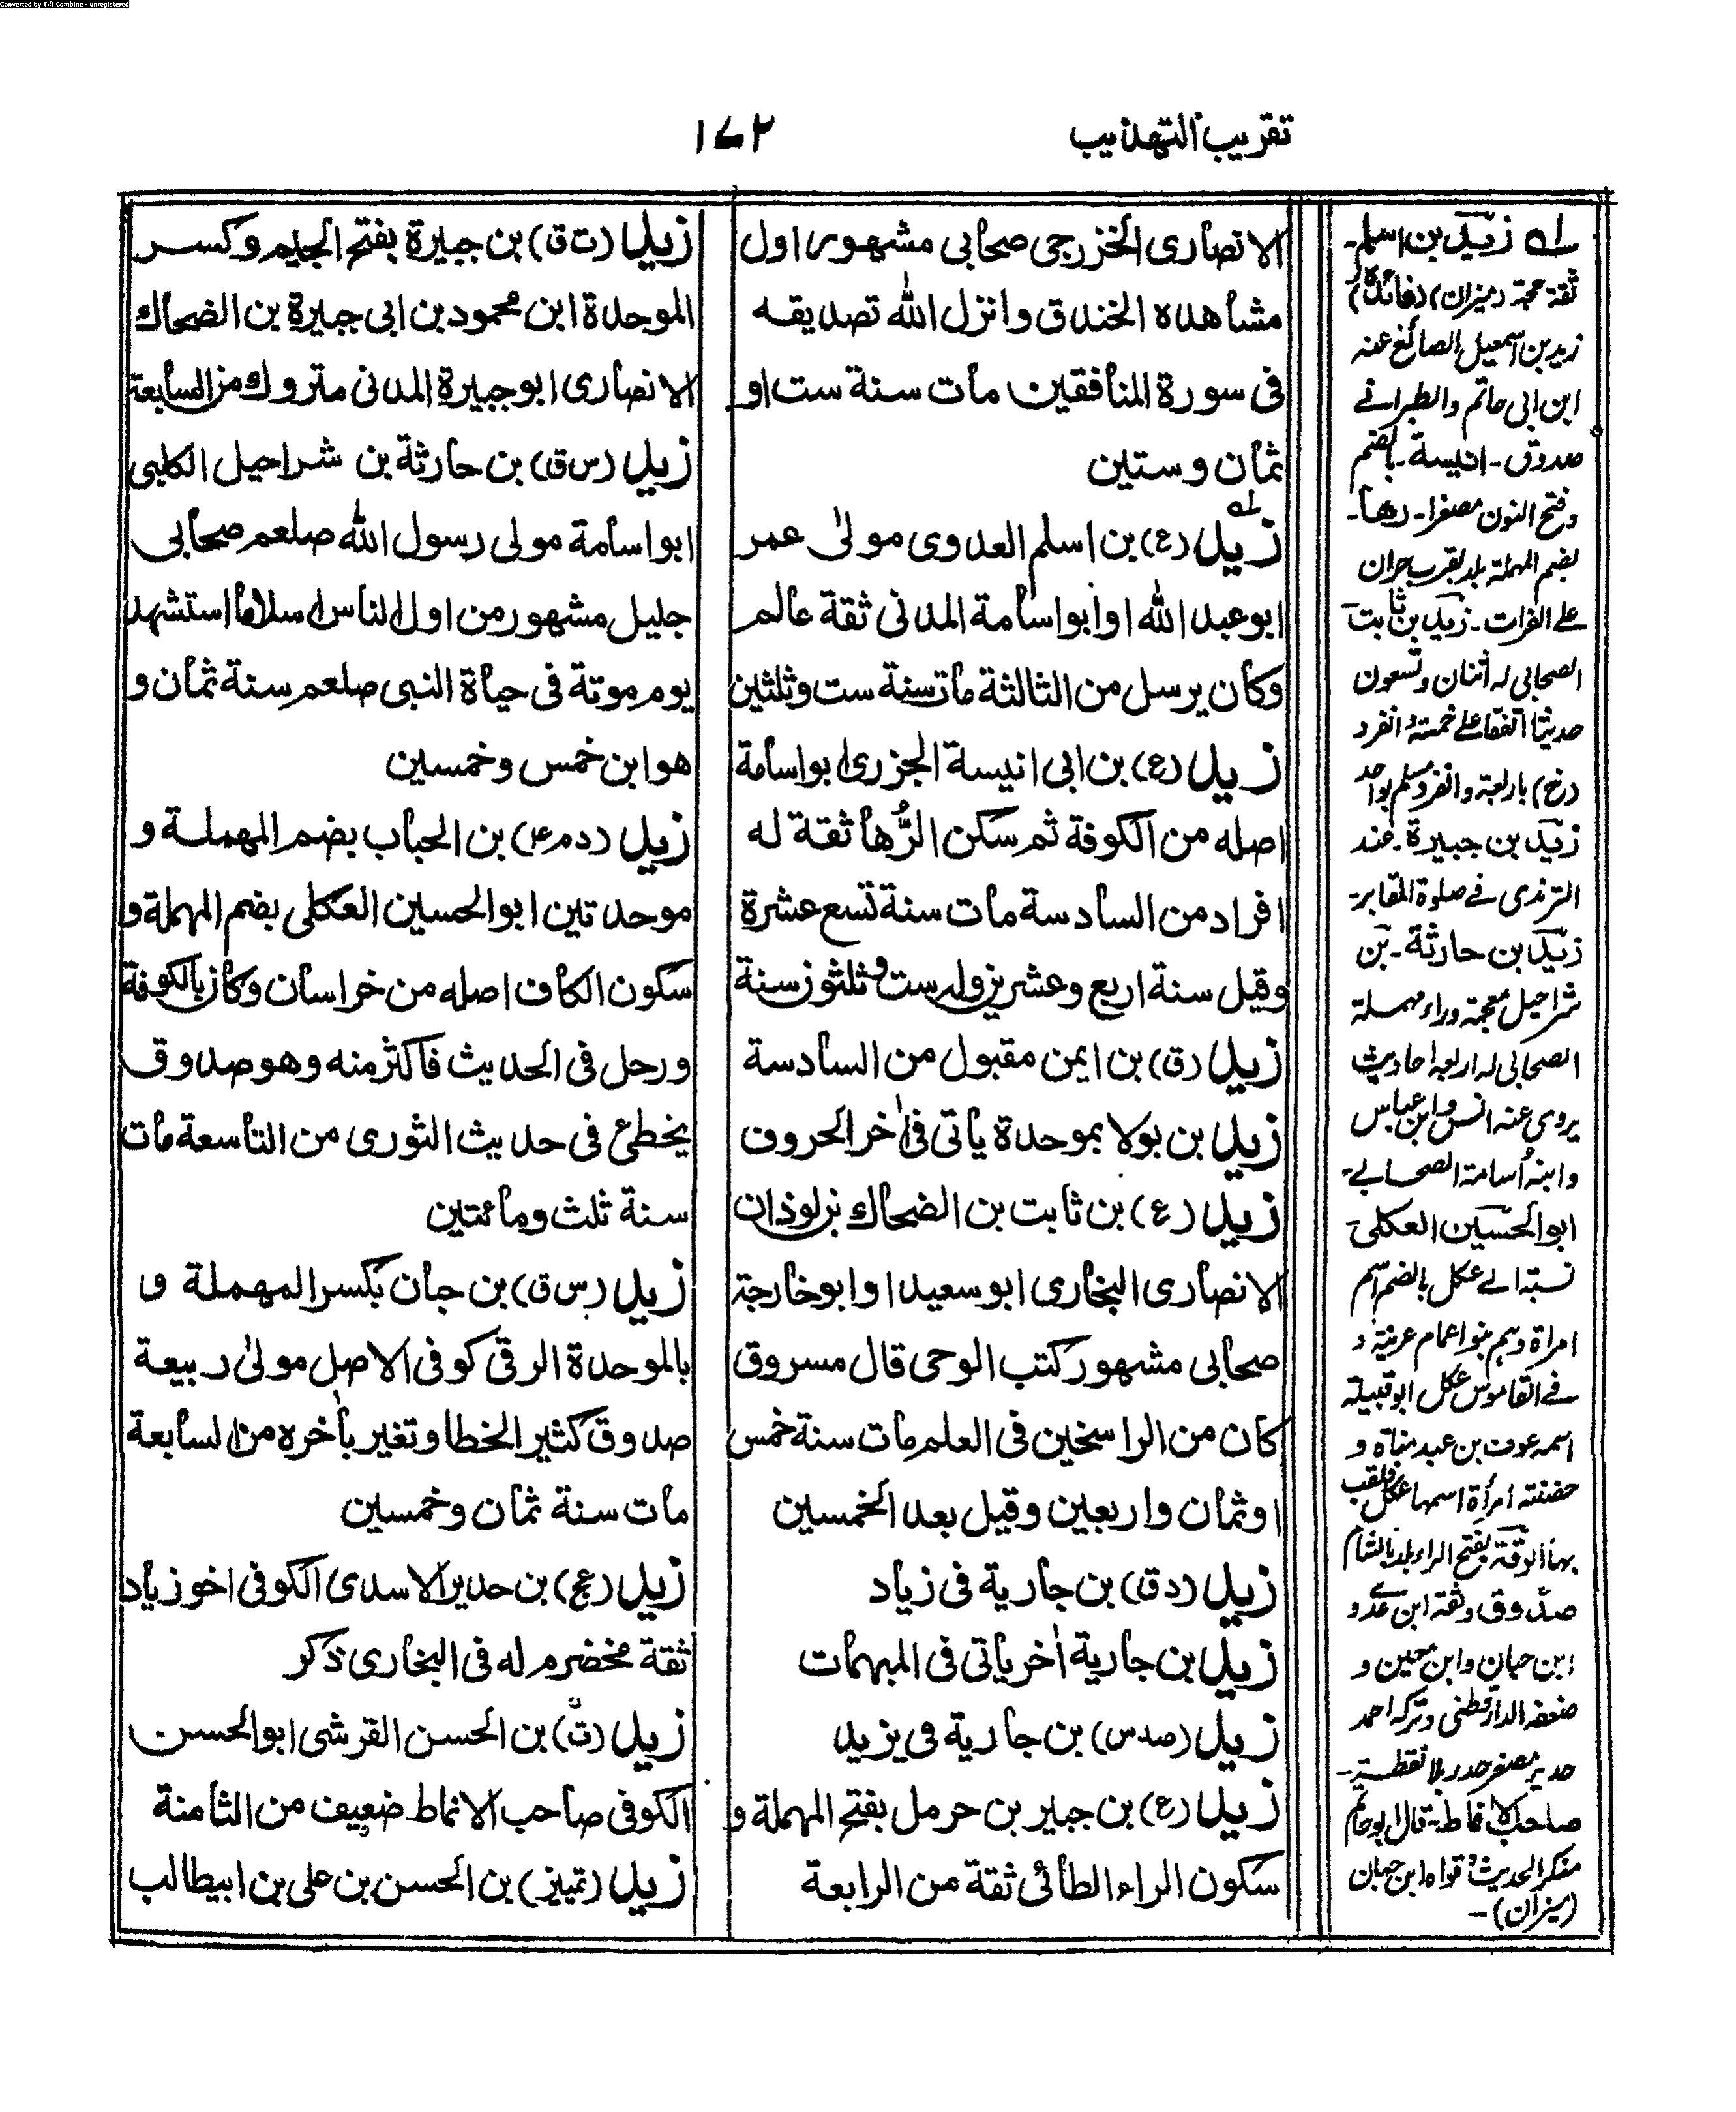 Converted by Tiff Combine - unregistered
تقریب التهذیب
۱۷۲
الانصاری الخزرجی صحابی مشهور اول
مشاهده الخندق وانزل الله تصدیقه
فی سورة المنافقین مات سنة ست او
ثمان وستین
زید (ع) بن اسلم العدوی مولیٰ عمر
ابو عبد الله او ابو اسامة المدنی ثقة عالم
وکان یرسل من الثالثة مات سنة ست وثلثین
زید (ع) بن ابی انیسة الجزری ابو اسامة
اصله من الکوفة ثم سکن الرُّها ثقة له
افراد من السادسة مات سنة تسع عشرة
وقیل سنة اربع وعشرین وله ست وثلثون سنة
زید (ق) بن ایمن مقبول من السادسة
زید بن بولا بموحدة یأتی فی اٰخر الحروف
زید (ع) بن ثابت بن الضحاك بن لوذان
الانصاری البخاری ابو سعید او ابو خارجة
صحابی مشهور کتب الوحی قال مسروق
کان من الراسخین فی العلم مات سنة خمس
او ثمان واربعین وقیل بعد الخمسین
زید (دق) بن جاریة فی زیاد
زید بن جاریة اٰخر یاتی فی المبهمات
زید (صدس) بن جاریة فی یزید
زید (ع) بن جبیر بن حرمل بفتح المهملة و
سکون الراء الطائی ثقة من الرابعة
زید (ت ق) بن جبیرة بفتح الجیم وکسر
الموحدة ابن محمود بن ابی جبیرة بن الضحاك
الانصاری ابو جبیرة المدنی متروك من السابعة
زید (س ق) بن حارثة بن شراحیل الکلبی
ابو اسامة مولی رسول الله صلعم صحابی
جلیل مشهور من اول الناس اسلاما استشهد
یوم موتة فی حیاة النبی صلعم سنة ثمان و
هو ابن خمس وخمسین
زید (دم ۴) بن الحباب بضم المهملة و
موحدتین ابو الحسین العکلی بضم المهملة و
سکون الکاف اصله من خراسان وکان بالکوفة
ورحل فی الحدیث فاکثر منه وهو صدوق
یخطئ فی حدیث الثوری من التاسعة مات
سنة ثلث ومائتین
زید (س ق) بن حبان بکسر المهملة و
بالموحدة الرقی کوفی الاصل مولیٰ ربیعة
صدوق کثیر الخطا وتغیر باٰخره من السابعة
مات سنة ثمان وخمسین
زید (عخ) بن حدیر الاسدی الکوفی اخو زیاد
ثقة مخضرم له فی البخاری ذکر
زید (ت) بن الحسن القرشی ابو الحسن
الکوفی صاحب الانماط ضعیف من الثامنة
زید (تمییز) بن الحسن بن علی بن ابیطالب
لہ زید بن اسلم۔
ثقة حجة (میزان) (فائدہ)
زید بن اسمعیل الصائغ عنه
ابن ابی حاتم والطبرانے
صدوق۔ انیسة۔ بضم
وفتح النون مصغرا۔ رها۔
بضم المهملة بلد بقرب حران
علے الفرات۔ زید بن ثابت
الصحابی له اثنان وتسعون
حدیثا اتفقا علے خمسة وانفرد
(خ) باربعة وانفرد مسلم بواحد
زید بن جبیرة۔ عند
الترمذی فے صلوة المقابر۔
زید بن حارثة۔ بن
شراحیل معجمة وراء مهملة
الصحابی له اربعة احادیث
یروی عنه انس وابن عباس
وابنه اُسامة الصحابے۔
ابو الحسین العکلی
نسبة الے عکل بالضم اسم
امرأة وهم بنو اعمام عرینة و
فے القاموس عکل ابو قبیلة
اسمه عوف بن عبد مناة و
حضنته امرأة اسمها عکل فلقب
بها الرقة بفتح الراء بلد بالشام
صدوق وثقه ابن عدے و
ابن حبان وابن معین و
ضعفه الدارقطنی وترکه احمد
حدیر مصغر حدر بلا نقطة۔
صاحب الانماط۔ قال ابو حاتم
منکر الحدیث وقواه ابن حبان
(میزان)۔